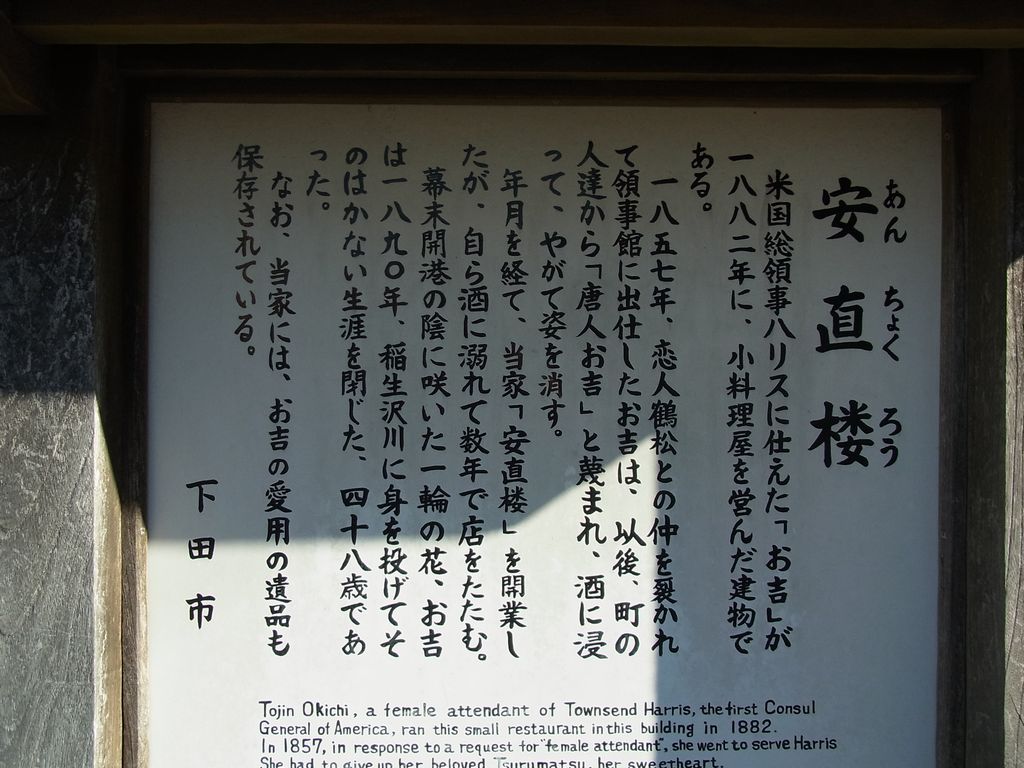 安直楼
あんちょくろう
米国総領事ハリスに仕えた「お吉」が
一八八二年に、小料理屋を営んだ建物で
ある。
一八五七年、恋人鶴松との仲を裂かれ
て領事館に出仕したお吉は、以後、町の
人達から「唐人お吉」と蔑まれ、酒に浸
って、やがて姿を消す。
年月を経て、当家「安直楼」を開業し
たが、自ら酒に溺れて数年で店をたたむ。
幕末開港の陰に咲いた一輪の花、お吉
は一八九〇年、稲生沢川に身を投げてそ
のはかない生涯を閉じた、四十八歳であ
った。
なお、当家には、お吉の愛用の遺品も
保存されている。
下田市
Tojin Okichi, a female attendant of Townsend Harris, the first Consul
General of America, ran this small restaurant in this building in 1882.
In 1857, in response to a request for "female attendant", she went to serve Harris
She had to give up her beloved Tsurumatsu, her sweetheart.